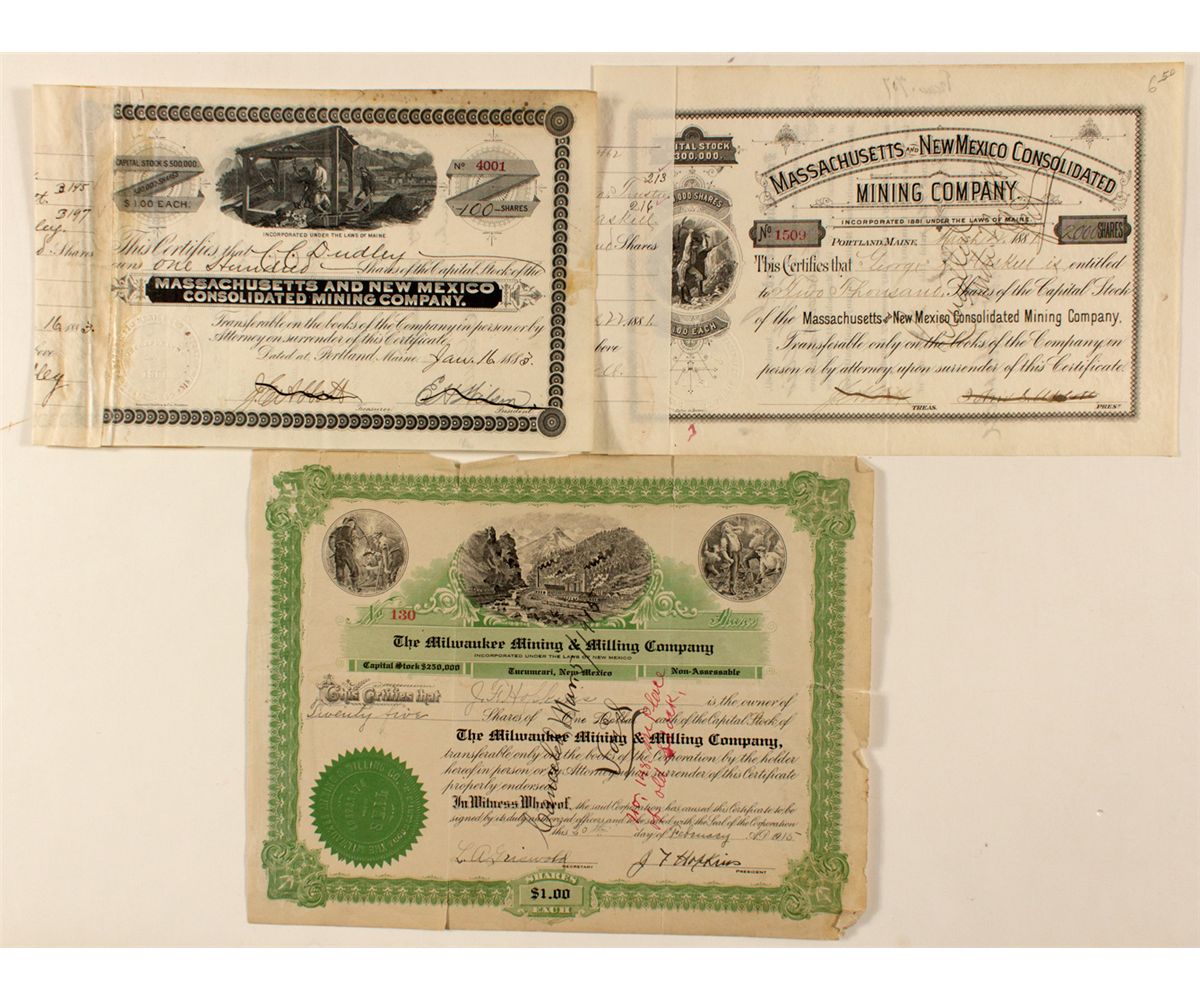 CAPITAL STOCK $500,000
500,000 SHARES
$1.00 EACH.
No 4001
100 SHARES
INCORPORATED UNDER THE LAWS OF MAINE.
This Certifies that C. C. Dudley
owns One Hundred Shares of the Capital Stock of the
MASSACHUSETTS AND NEW MEXICO
CONSOLIDATED MINING COMPANY.
Transferable on the books of the Company in person or by
Attorney on surrender of this Certificate.
Dated at Portland, Maine Jan. 16 1883.
Treasurer
President
3145
3197
Shares
16 1883
6.50
CAPITAL STOCK
300,000.
213
216
Shares
000 SHARES
1.00 EACH
27 1881
MASSACHUSETTS AND NEW MEXICO CONSOLIDATED
MINING COMPANY.
INCORPORATED 1881 UNDER THE LAWS OF MAINE.
No 1509
PORTLAND, MAINE, 188
2000 SHARES
This Certifies that George Haskell is entitled
to Two Thousand Shares of the Capital Stock
of the Massachusetts and New Mexico Consolidated Mining Company,
Transferable only on the books of the Company, in
person or by attorney, upon surrender of this Certificate.
TREAS.
PREST
No 130
Shares
The Milwaukee Mining & Milling Company
INCORPORATED UNDER THE LAWS OF NEW MEXICO
Capital Stock $250,000
Tucumcari, New Mexico
Non-Assessable
This Certifies that J. F. Hopkins is the owner of
Twenty five Shares of One Dollar each of the Capital Stock of
The Milwaukee Mining & Milling Company,
transferable only on the books of the Corporation by the holder
hereof in person or by Attorney upon surrender of this Certificate
properly endorsed.
In Witness Whereof, the said Corporation has caused this Certificate to be
signed by its duly authorized officers and to be sealed with the Seal of the Corporation
this 20th day of February A.D. 1915
L. A. Griswold
SECRETARY
J F Hopkins
PRESIDENT
SHARES
$1.00
EACH
Canceled
in place
of old stock.